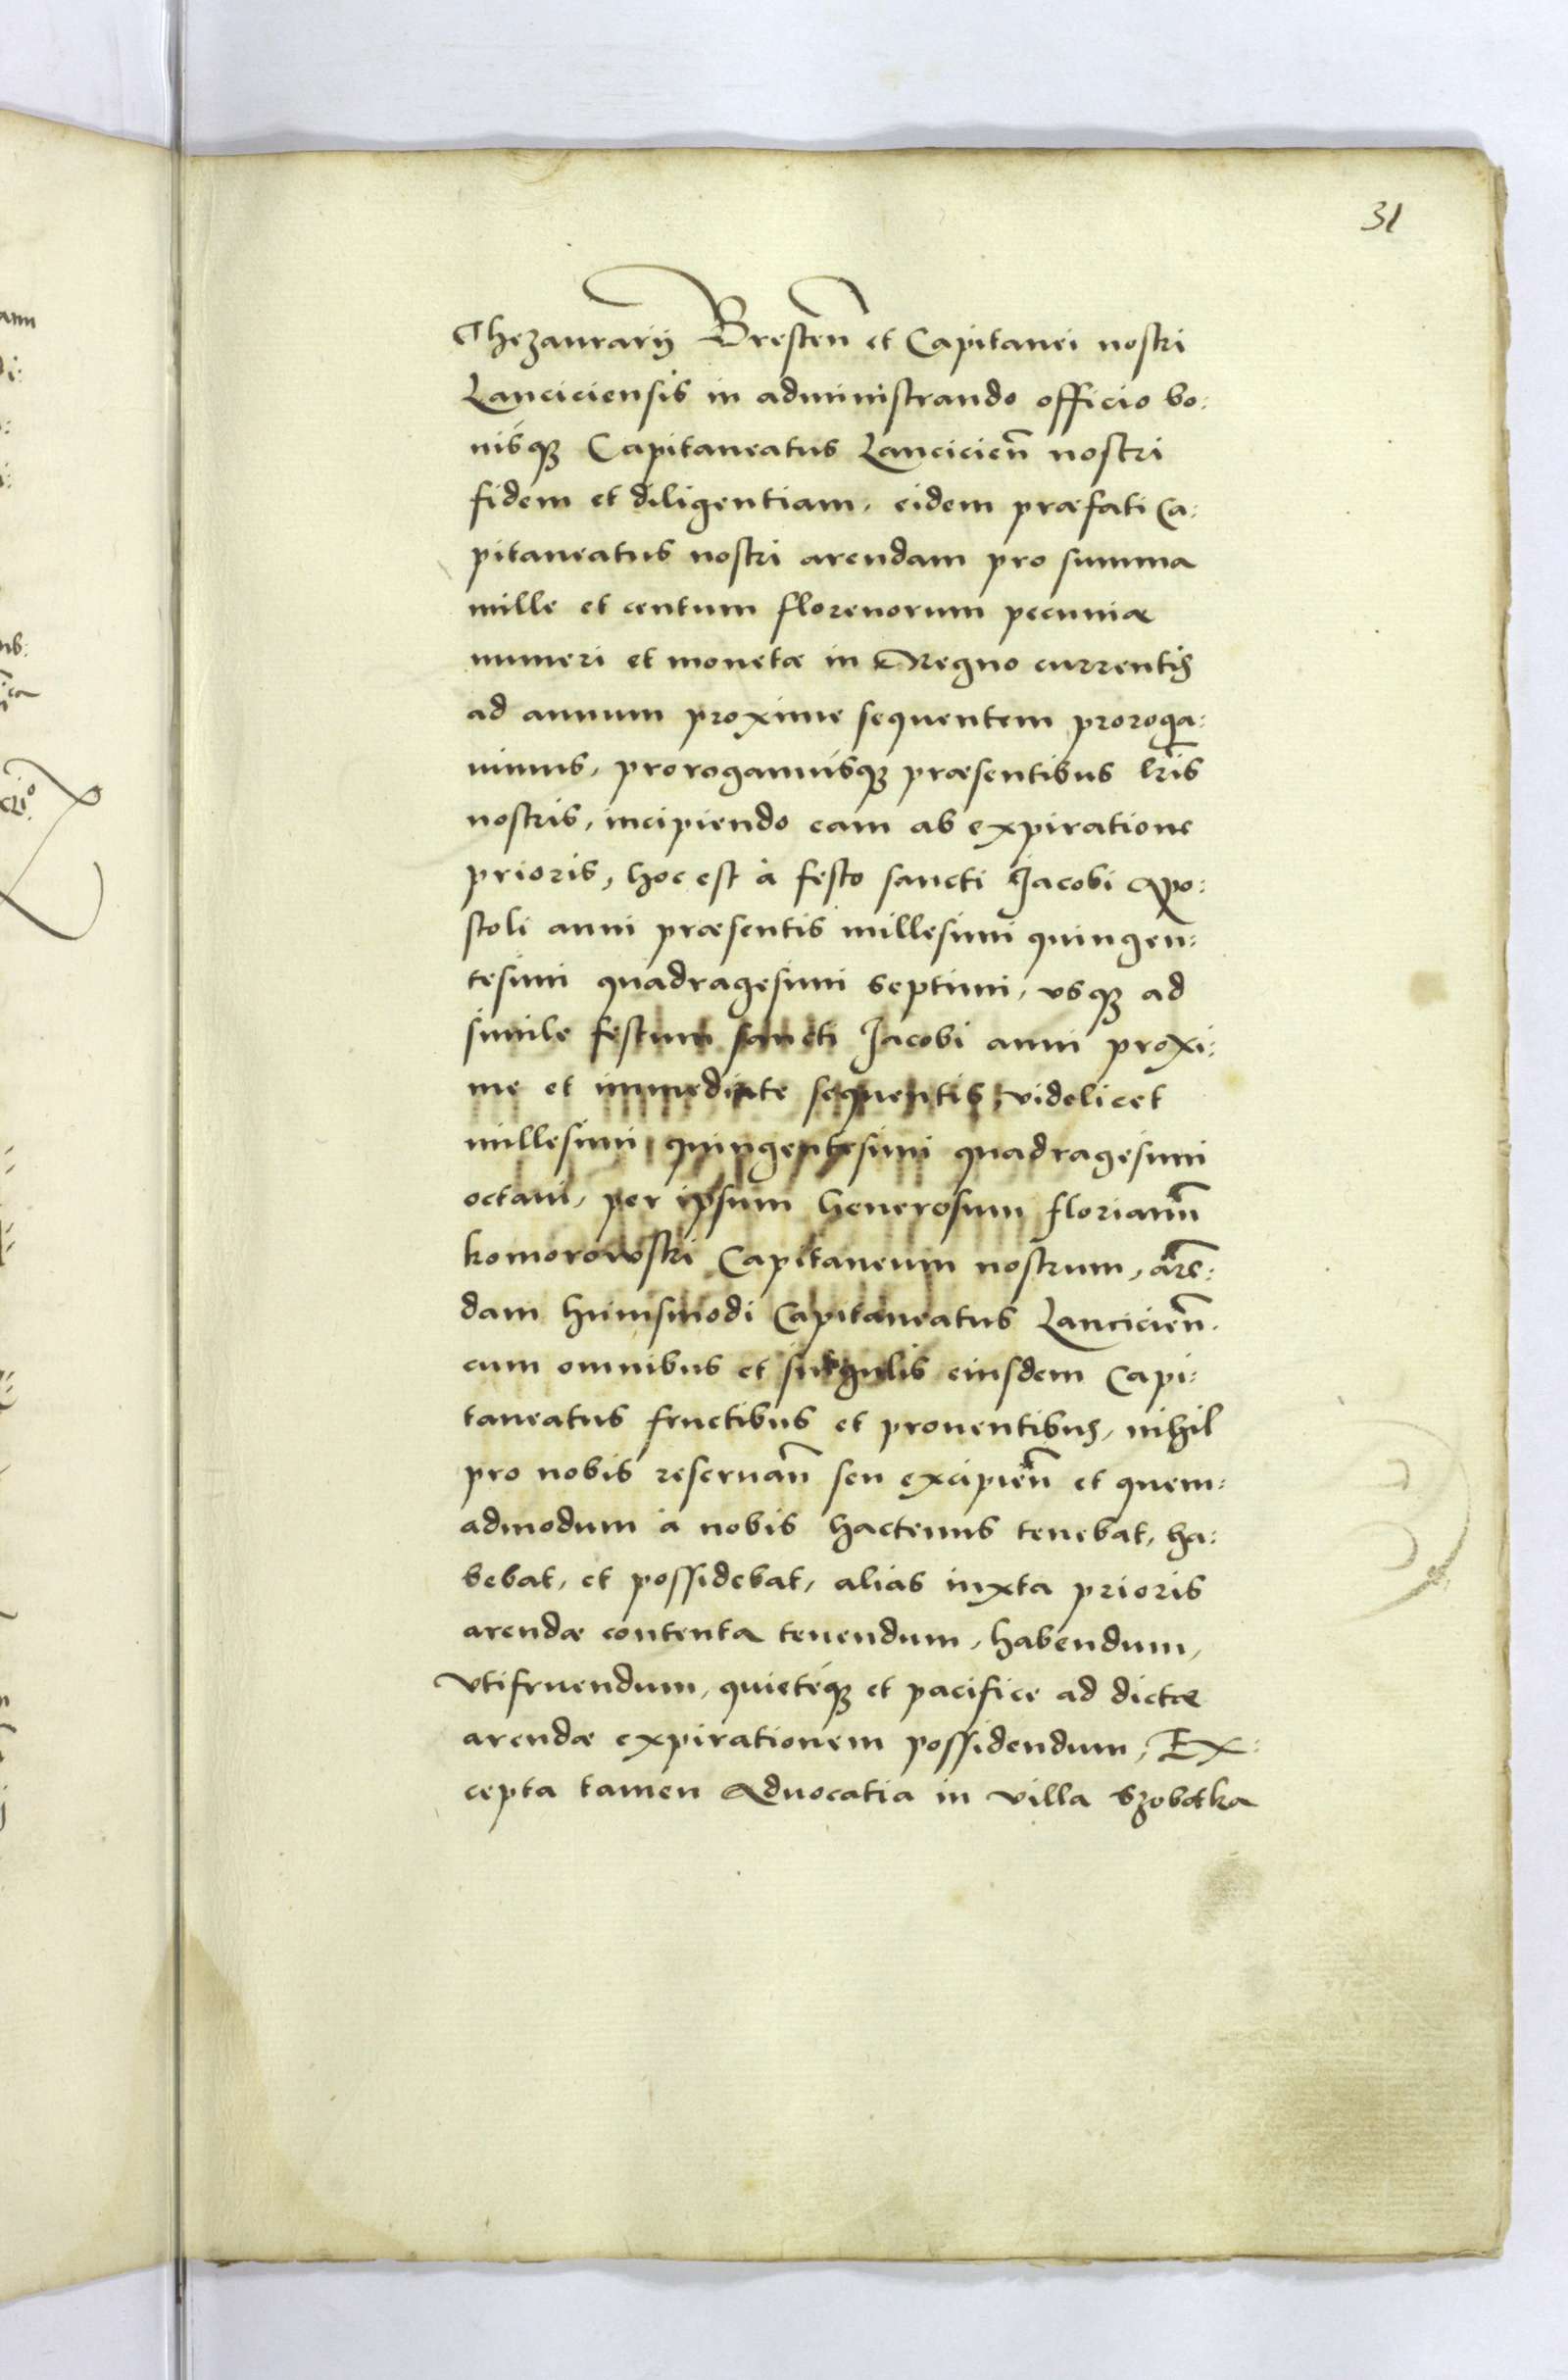 31
Thezaurarij Bresten̄ et Capitanei nostri
Lanciciensis in administrando officio bo:
nisqꝫ Capitaneatus Lancicien̄ nostri
fidem et diligentiam, eidem præfati Ca:
pitaneatus nostri arendam pro summa
mille et centum florenorum pecuniæ
numeri et monetæ in Regno currentis
ad annum proxime sequentem proroga:
uimus, prorogamusqꝫ præsentibus lr̄is
nostris, incipiendo eam ab expiratione
prioris, hoc est à festo sancti Jacobi Apo:
stoli anni præsentis millesimi quingen:
tesimi quadragesimi septimi, vsqꝫ ad
simile festum sancti Jacobi anni proxi:
me et immediate sequentis, videlicet
millesimi quingentesimi quadragesimi
octaui, per ipsum Generosum Florianū
Komorowski Capitaneum nostrum, arē:
dam huiusmodi Capitaneatus Lancicien̄.
cum omnibus et singulis eiusdem Capi:
taneatus fructibus et prouentibus, nihil
pro nobis reseruan̄ seu excipien̄ et quem:
admodum à nobis hactenus tenebat, ha:
bebat, et possidebat, alias iuxta prioris
arendæ contenta tenendum, habendum,
vtifruendum, quietéqꝫ et pacifice ad dictæ
arendæ expirationem possidendum, Ex:
cepta tamen Aduocatia in villa Szobotka